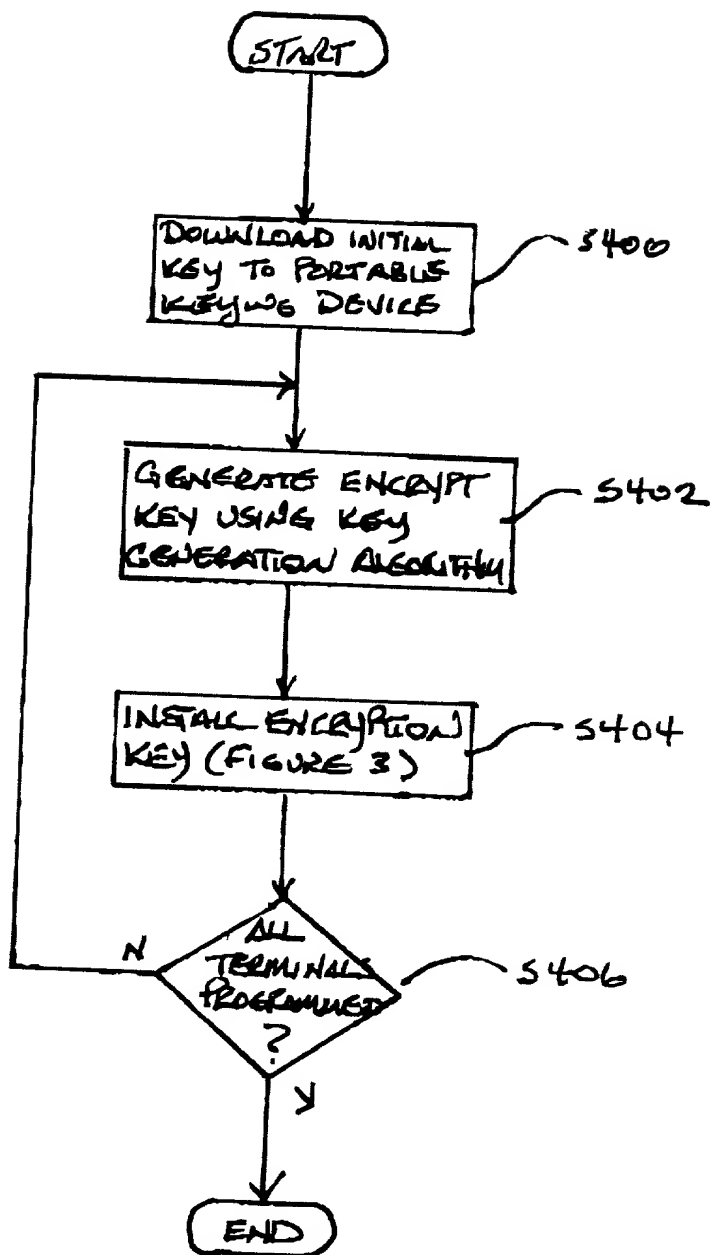 START
DOWNLOAD INITIAL
KEY TO PORTABLE
KEYING DEVICE
S400
GENERATE ENCRYPT
KEY USING KEY
GENERATION ALGORITHM
S402
INSTALL ENCRYPTION
KEY (FIGURE 3)
S404
ALL
TERMINALS
PROGRAMMED
?
S406
N
Y
END